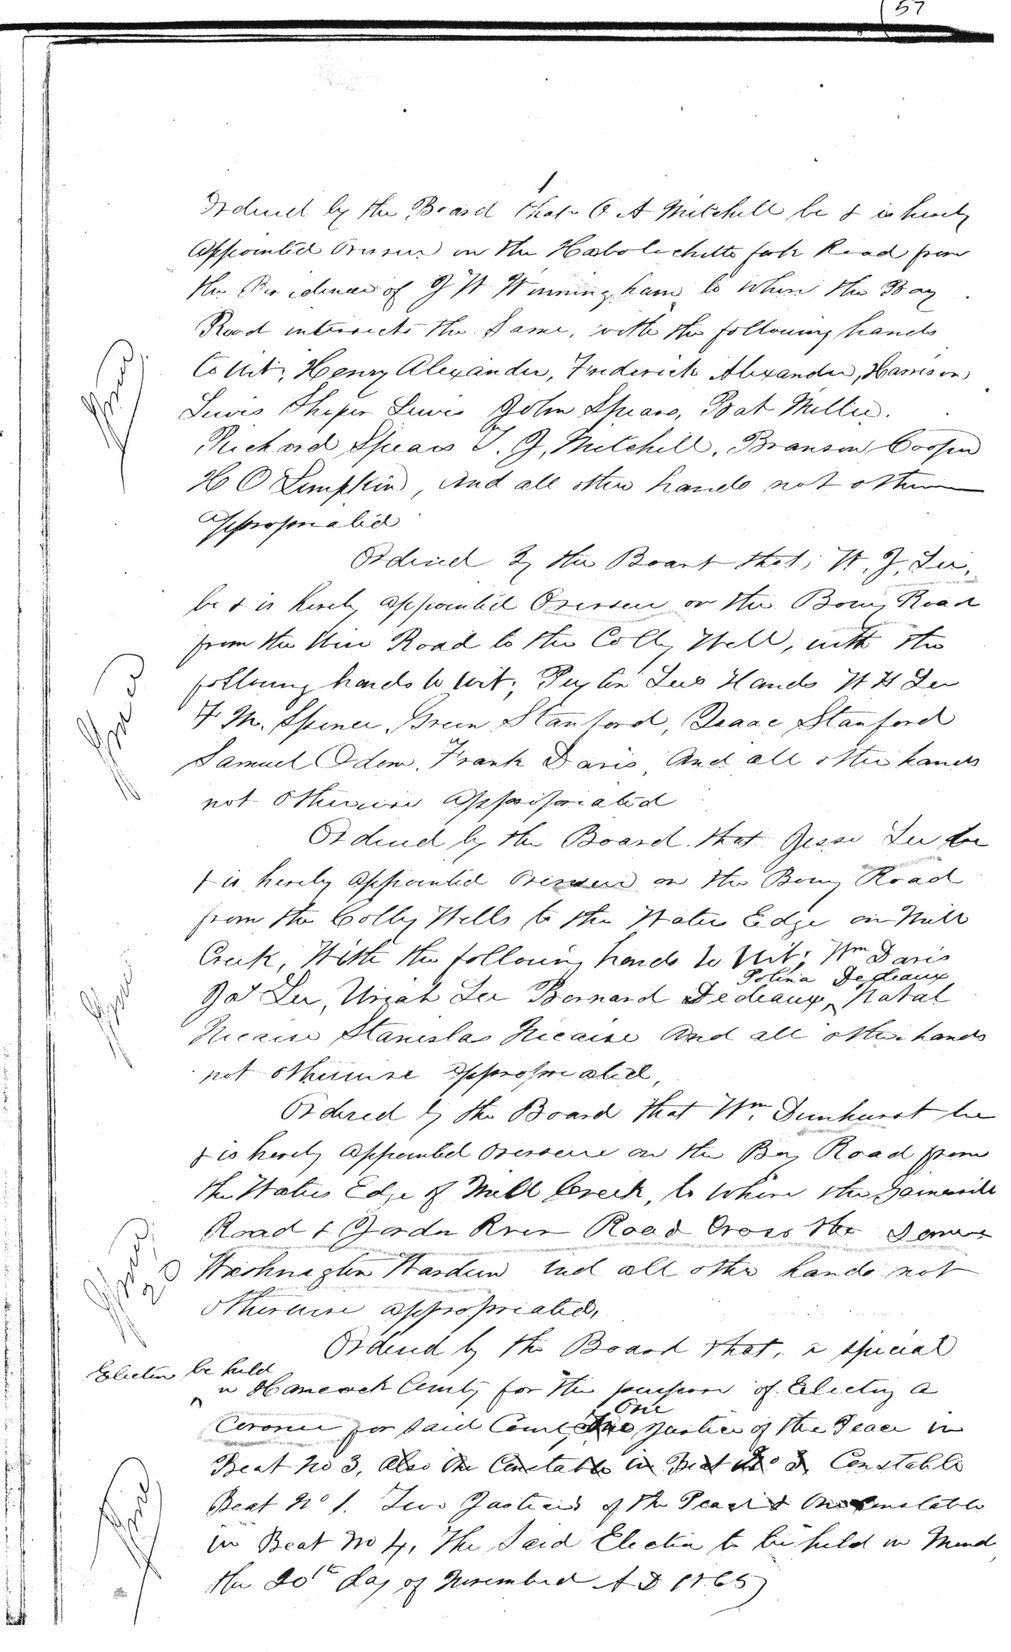 57
Ordered by the Board that O A Mitchell be & is hereby
appointed Overseer on the Habolochitto fork Road from
the Residence of J W Winningham to where the Bay
Road intersects the Same, with the following hands
to wit; Henry Alexander, Frederick Alexander, Harrison
Lewis Lewis John Spears, Bat Millie.
Richard Spears T. J, Mitchell, Branson Cooper
H O Limpkin, And all other hands not otherwise
appropriated
Ordered By the Board that, W. J, Lee,
be & is hereby appointed Overseer on the Road
from the Wire Road to the Colly Well, with the
following hands to wit; Peyton Lees Hands W H Lee
F M, Spence, Green Stanford, Isaac Stanford
Samuel Odom, Frank Davis, And all other hands
not otherwise appropriated
Ordered by the Board that Jesse Lee be
& is hereby appointed Overseer on the Road
from the Colly Wells to the Waters Edge on Mill
Creek, With the following hands to Wit; Wm Davis
Polina Dedeaux
Jas Lee, Uriah Lee Bernard Dedeaux, Natal
Nicaise Stanislas Nicaise and all other hands
not otherwise appropriated,
Ordered by the Board that Wm. Dunhurst be
& is hereby appointed overseer on the Bay Road from
the Waters Edge of Mill Creek, to where the Gainesville
Road & Jordan River Road Cross the Same
Washington Warden And all other hands not
otherwise appropriated,
Ordered by the Board that, a special
Election be held
in Hancock County for the purpose of Electing a
One
Coroner for said County, Justice of the Peace in
Beat No 3, Also One Constable in Beat No 3, Constable
Beat No 1. Two Justices of the Peace & One Constable
in Beat No 4, The Said Election to be held on Mond
the 20th day of November A D 1865